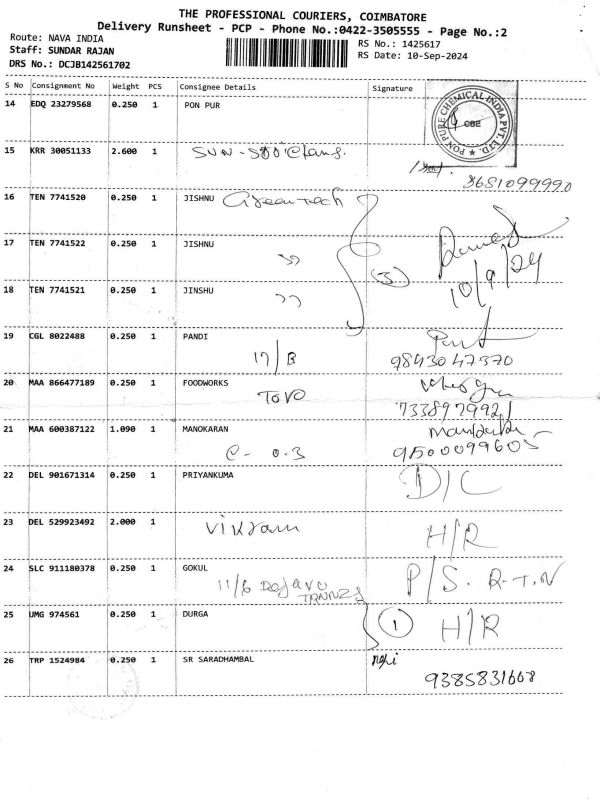 THE PROFESSIONAL COURIERS, COIMBATORE
Delivery Runsheet - PCP - Phone No.:0422-3505555 - Page No.:2
Route: NAVA INDIA
Staff: SUNDAR RAJAN
DRS No.: DCJB142561702
RS No.: 1425617
RS Date: 10-Sep-2024
S No Consignment No Weight PCS Consignee Details Signature
14 EDQ 23279568 0.250 1 PON PUR
PON PURE CHEMICAL INDIA PVT. LTD. ★ CBE
15 KRR 30051133 2.600 1
8681099990
16 TEN 7741520 0.250 1 JISHNU Greentech
17 TEN 7741522 0.250 1 JISHNU
" (3) 10/9/24
18 TEN 7741521 0.250 1 JINSHU
"
19 CGL 8022488 0.250 1 PANDI
17/B 9843047370
20 MAA 866477189 0.250 1 FOODWORKS
TOVO 7338979921
21 MAA 600387122 1.090 1 MANOKARAN
C- 0.3 9500099605
22 DEL 901671314 0.250 1 PRIYANKUMA D/C
23 DEL 529923492 2.000 1 Vikram H/R
24 SLC 911180378 0.250 1 GOKUL P/S. R.T.N
11/6
25 UMG 974561 0.250 1 DURGA 1 H/R
26 TRP 1524984 0.250 1 SR SARADHAMBAL
9385831668